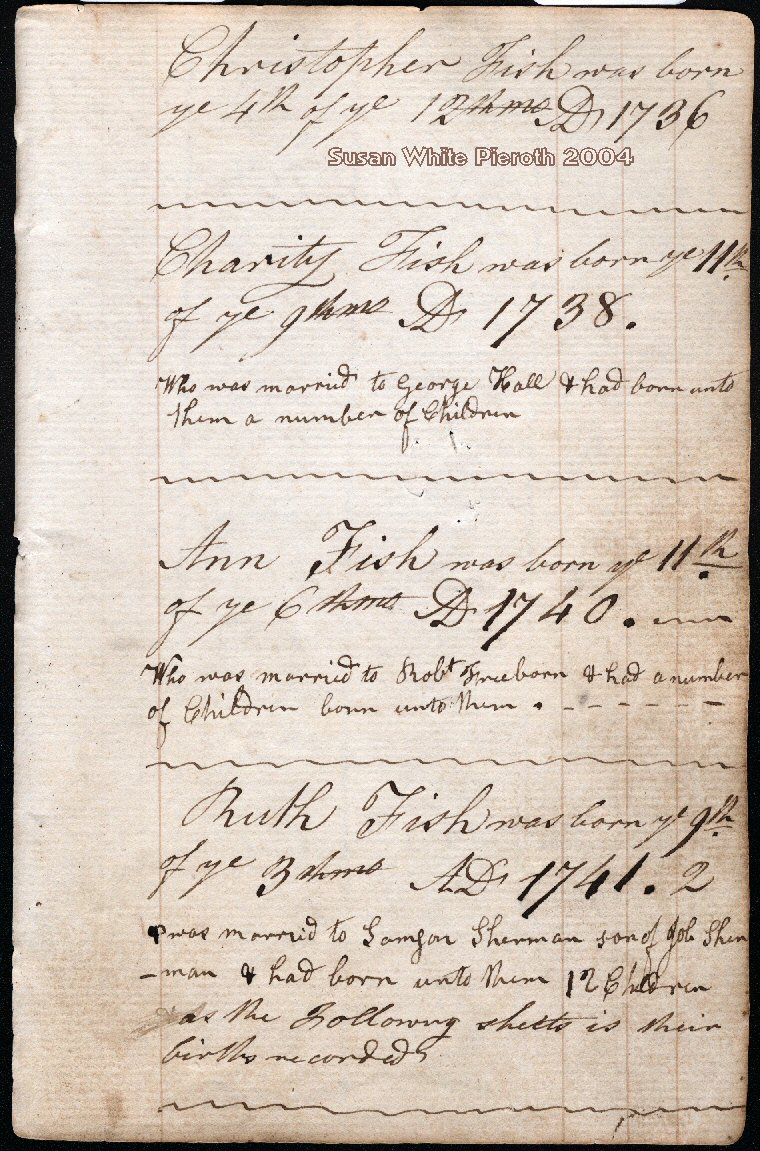 Christopher Fish was born
ye 4th of ye 12thmo AD 1736
Susan White Pieroth 2004
Charity Fish was born ye 11th
of ye 9thmo AD 1738.
Who was married to George Hall & had born unto
them a number of Children
Ann Fish was born ye 11th
of ye 6thmo AD 1740.
Who was married to Robt Freeborn & had a number
of Children born unto them.
Ruth Fish was born ye 9th
of ye 3dhmo AD 1741.2
was married to Samson Sherman son of Job Sher
-man & had born unto them 12 Children
as the Following sheets is their
births recorded